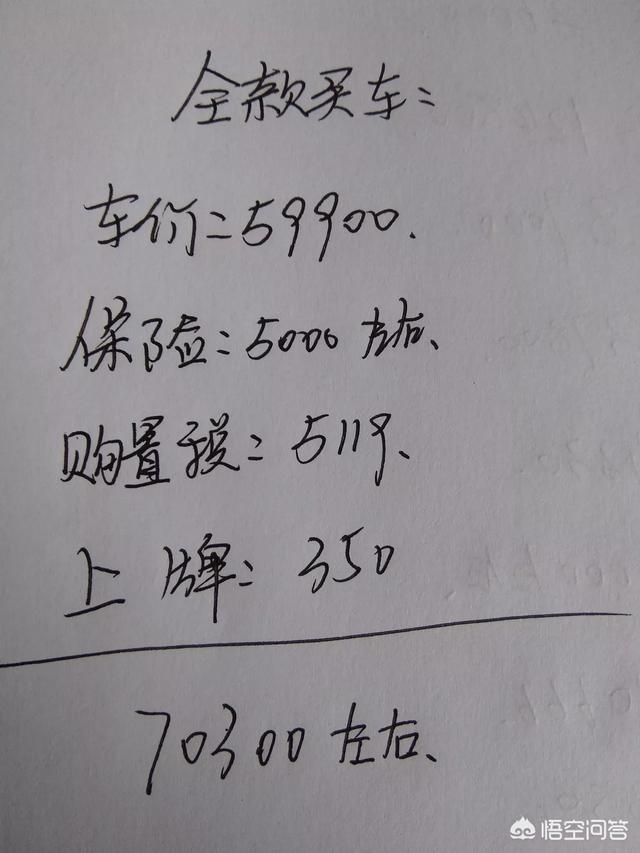 全款买车:
车价:59900.
保险:5000左右、
购置税:5119、
上牌:350
70300左右、
悟空问答